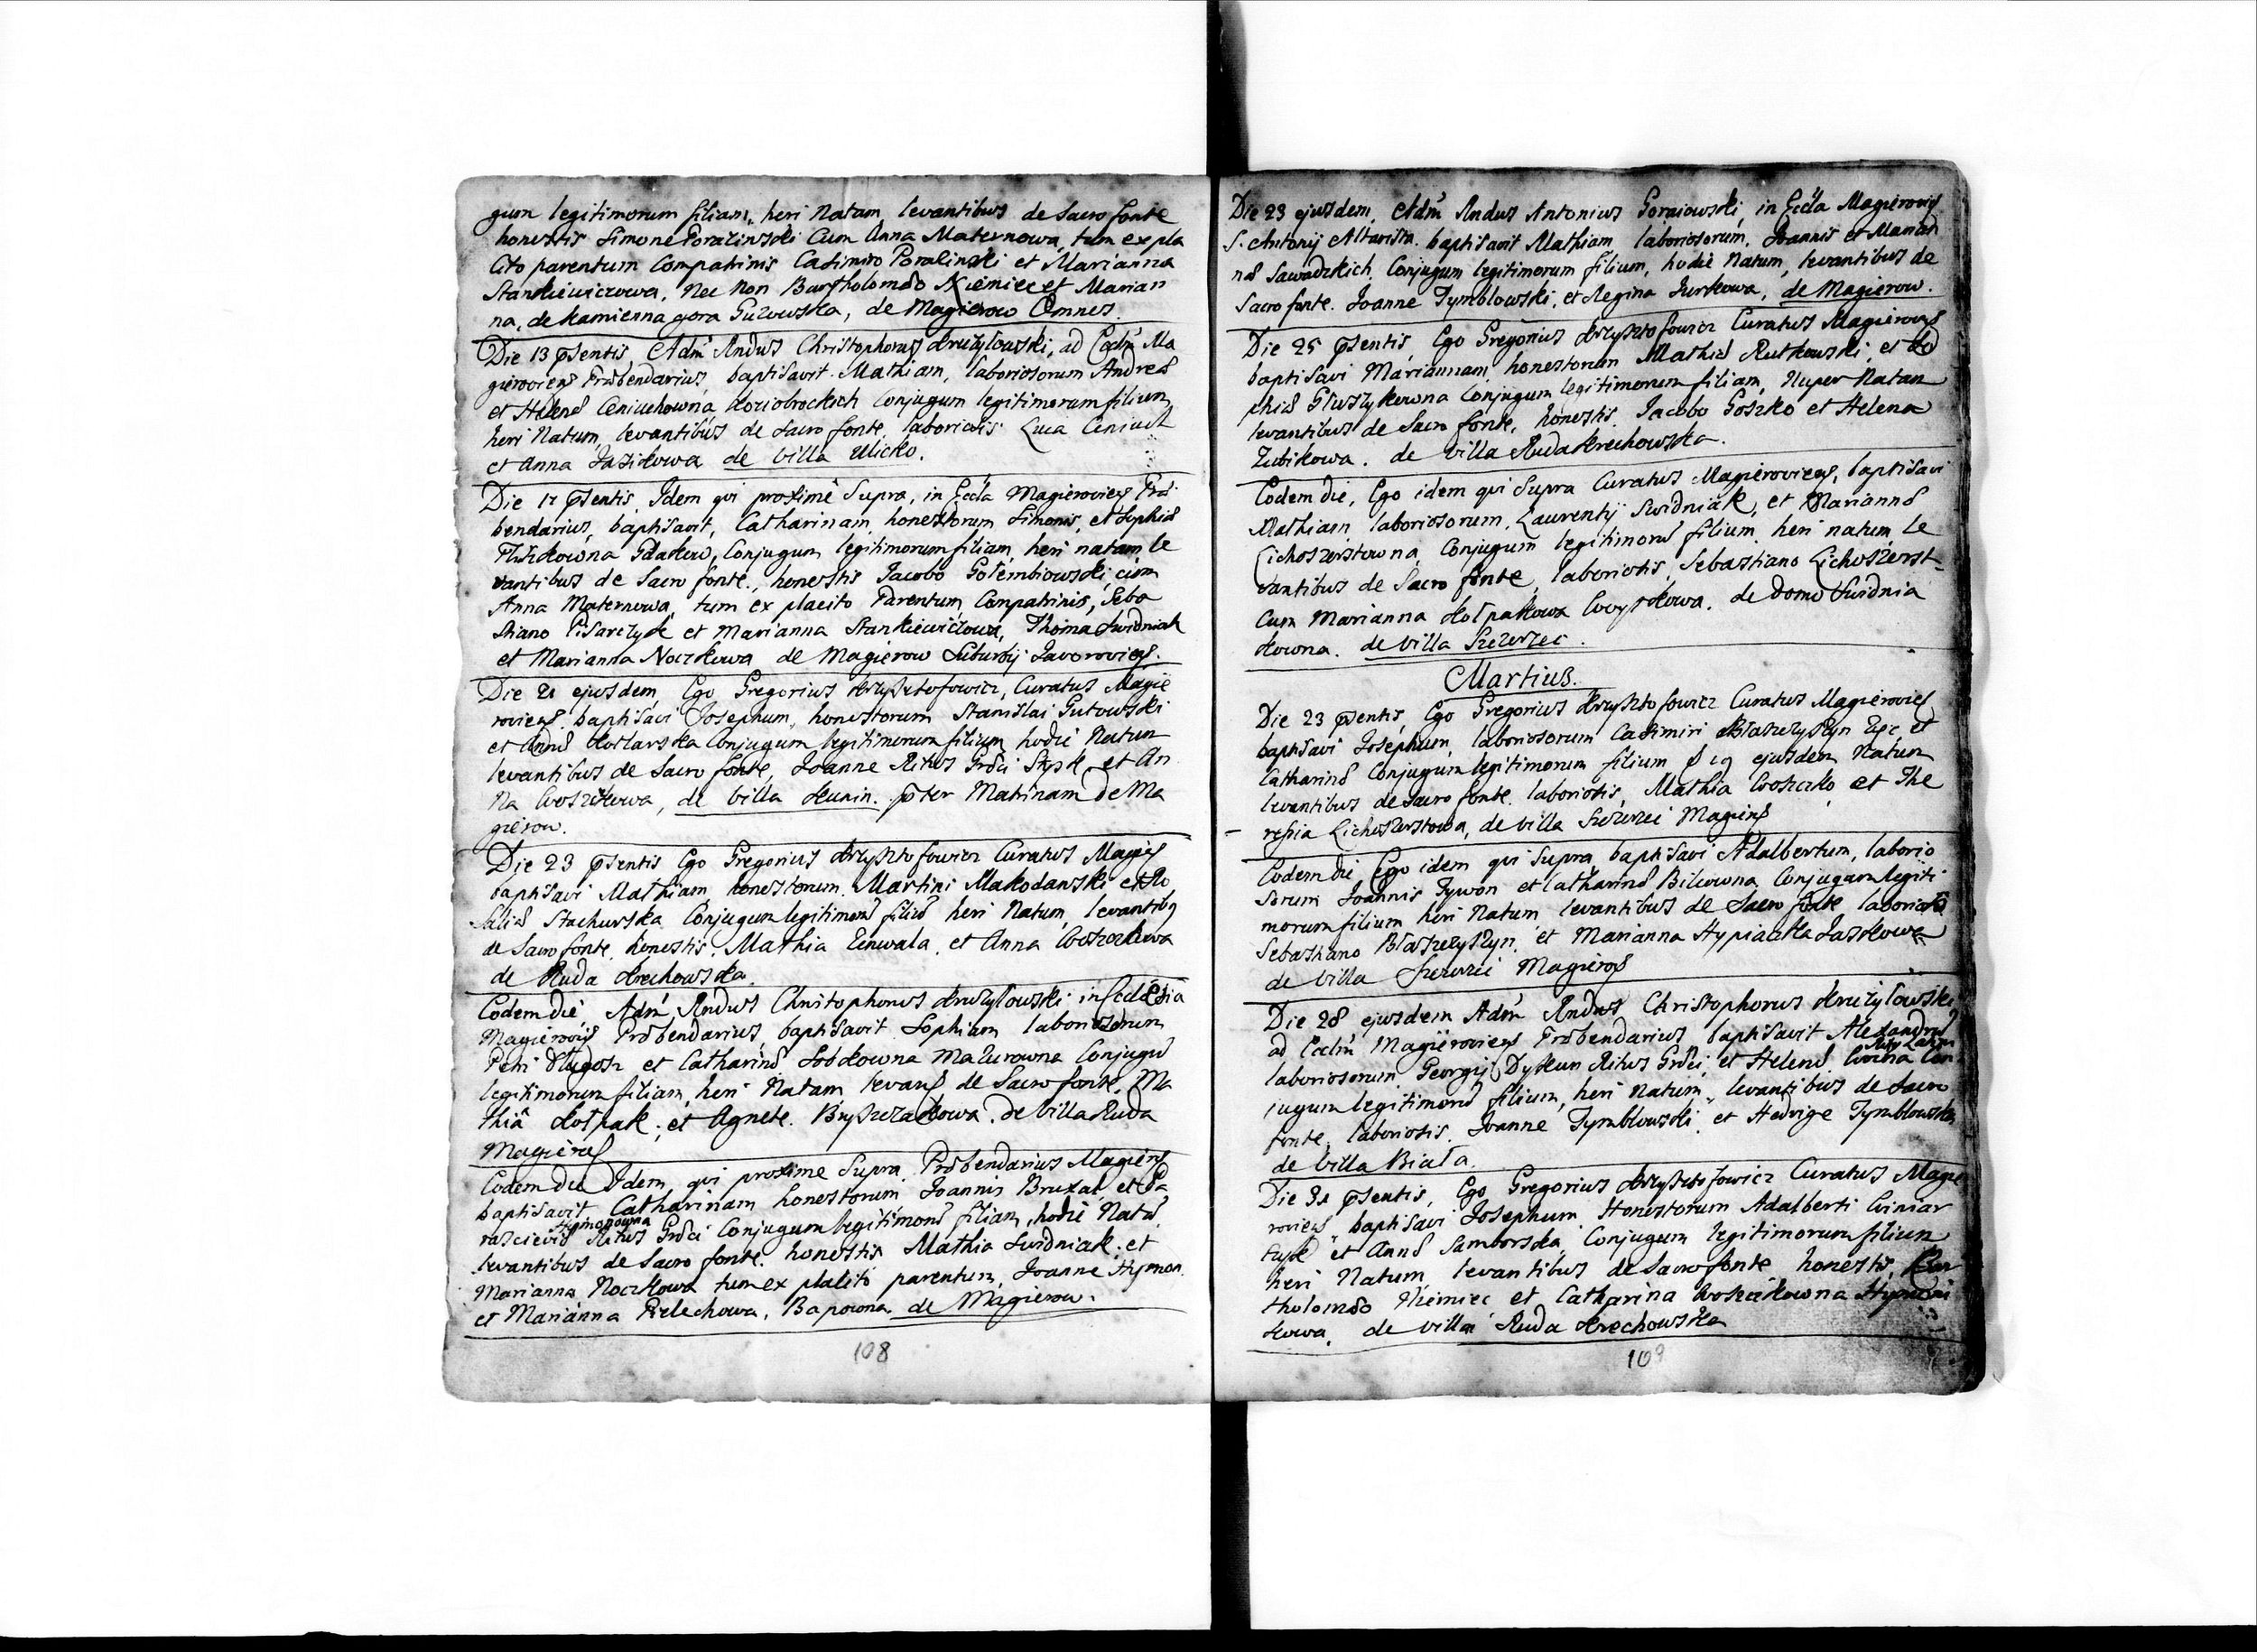 gum legitimorum filiam, heri Natam, levantibus de Sacro fonte
honestis Simone Poralinski Cum Anna Maternowa, tum ex pla
cito parentum Compatrinis Casimiro Poralinski et Marianna
Stankiewiczowa, Nec Non Bartholomæo Niemiec et Marian
na, de kamienna gora Guzowska, de Magierow Omnes.
Die 13 præsentis, Adm Rndus Christophorus Kruzylowski, ad Ecclm Ma
gieroviens Præbendarius, baptisavit Mathiam, laboriosorum Andreæ
et Helenæ Ceniuchowna Koziobrockich Conjugum legitimorum filium
heri Natum, levantibus de Sacro fonte, laboriosis Luca Ceniuch
et Anna Jasikowa de villa Ulicko.
Die 17 præsentis Idem qui proxime Supra, in Eccla Magieroviens Præ
bendarius, baptisavit, Catharinam, honestorum Simonis, et Sophiæ
Conjugum legitimorum filiam, heri natam, le
vantibus de Sacro fonte, honestis Jacobo Gołembiowski, cum
Anna Maternowa, tum ex placito Parentum, Compatrinis, Seba
stiano Pisarczyk et Marianna Stankiewiczowa, Thoma Swidniak
et Marianna Noczkowa de Magierow Suburbij Javoroviens.
Die 21 ejusdem, Ego Gregorius Krzysztofowicz, Curatus Magie
roviens baptisavi Josephum, honestorum Stanislai Gutowski
et Annæ Kotlarska Conjugum legitimorum filium, hodie Natum
levantibus de Sacro fonte, Joanne Ritus Græci Stysk et An
na Woszikowa, de villa Kunin. præter Matrinam de Ma
gierow.
Die 23 præsentis Ego Gregorius Krzysztofowicz Curatus Magies
baptisavi Mathiam, honestorum Martini Makodanski et Ro
saliæ Stachurska Conjugum legitimorū filiū heri Natum, levantibus
de Sacro fonte, honestis, Mathia et Anna Woszczkowa
de Ruda Krechowska.
Eodem die Adm Rndus Christophorus Kruzylowski in Ecclesia
Magierovis Præbendarius, baptisavit Sophiam laboriosorum
Petri Długosz et Catharinæ Sobkowna Mazurowna Conjugū
legitimorum filiam, heri Natam, levans de Sacro fonte, Ma
thiâ Kołpak, et Agnete Bryszczakowa. de villa Ruda
Magieres
Eodem die Idem, qui proxime Supra Præbendarius Magiers
baptisavit Catharinam honestorum Joannis Bruzal et Pa
Hymonowna
rasceviæ Ritus Græci Conjugum legitimorū filiam, hodie Natā
levantibus de Sacro fonte. honestis Mathia Swidniak, et
Marianna Noczkowa tum ex placito parentum, Joanne Hymon
et Marianna Perlechowa, Bapowna de Magierow.
108
Die 23 ejusdem, Adm Rndus Antonius Goraiowski, in Eccla Magierovis
S. Antonij Altarista baptisavit Mathiam, laboriosorum, Joannis et Marian
næ Sawadzkich, Conjugum legitimorum filium, hodie Natum, levantibus de
Sacro fonte. Joanne Tymblowski, et Regina Jurkowa, de Magierow.
Die 25 præsentis Ego Gregorius Krzysztofowicz Curatus Magieroviens
baptisavi Mariannam honestorum Mathiæ Rutkowski, et So
phiæ Głuszykowna Conjugum legitimorum filiam, Nuper Natam
levantibus de Sacro fonte, honestis, Jacobo Goszko et Helena
Zubikowa. de villa Ruda Krechowska.
Eodem die, Ego idem qui Supra Curatus Magieroviens, baptisavi
Mathiam, laboriosorum, Laurentij Swidniak, et Mariannæ
Lichoszerstowna, Conjugum legitimorū filium, heri natum, le
vantibus de Sacro fonte, laboriosis, Sebastiano Lichoszerst
Cum Marianna Kołpakowa de Domo Swidnia
kowna. de villa Szczerzec.
Martius.
Die 23 præsentis, Ego Gregorius Krzysztofowicz Curatus Magierovies
baptisavi Josephum, laboriosorum Casimiri et
Catharinæ Conjugum legitimorum filium 19 ejusdem Natum
levantibus de Sacro fonte. laboriosis, Mathia Woszczko et The
ressia Lichoszerstowa, de villa Szczerzei Magiers
Eodem die, Ego idem qui Supra baptisavi Adalbertum, laborio
sorum Joannis Tywon et Catharinæ Bilowna Conjugum legiti
morum filium heri Natum levantibus de Sacro fonte laboriosis
Sebastiano Błaszczyszyn et Marianna Hypiaczka Jaskowa
de villa Szczerzei Magieros
Die 28 ejusdem Adm Rndus Christophorus Kruzylowski
ad Ecclm Magieroviens Præbendarius, baptisavit Alexandrū
laboriosorum Georgij Dyskun Ritus Græci, et Helenæ Con
jugum legitimorū filium, heri Natum, levantibus de Sacro
fonte, laboriosis. Joanne Tymblowski, et Hedvige Tymblowska
de villa Biała.
Die 31 præsentis, Ego Gregorius Krzysztofowicz Curatus Magie
roviens baptisavi Josephum Honestorum Adalberti Winiar
et Annæ Samborska, Conjugum legitimorum filium
heri Natum, levantibus de Sacro fonte honestis, Bar
tholomæo Niemiec et Catharina Woszcikowna
kowa, de villa Ruda Krechowska
109